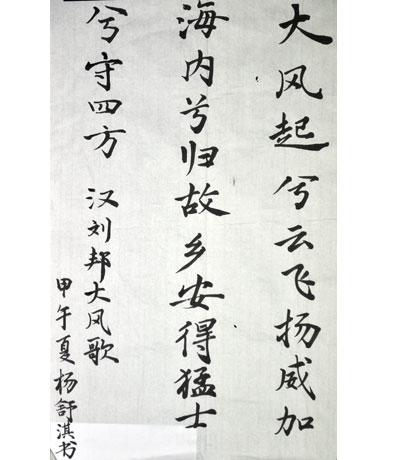 大风起兮云飞扬威加
海内兮归故乡安得猛士
兮守四方 汉刘邦大风歌
甲午夏杨舒淇书